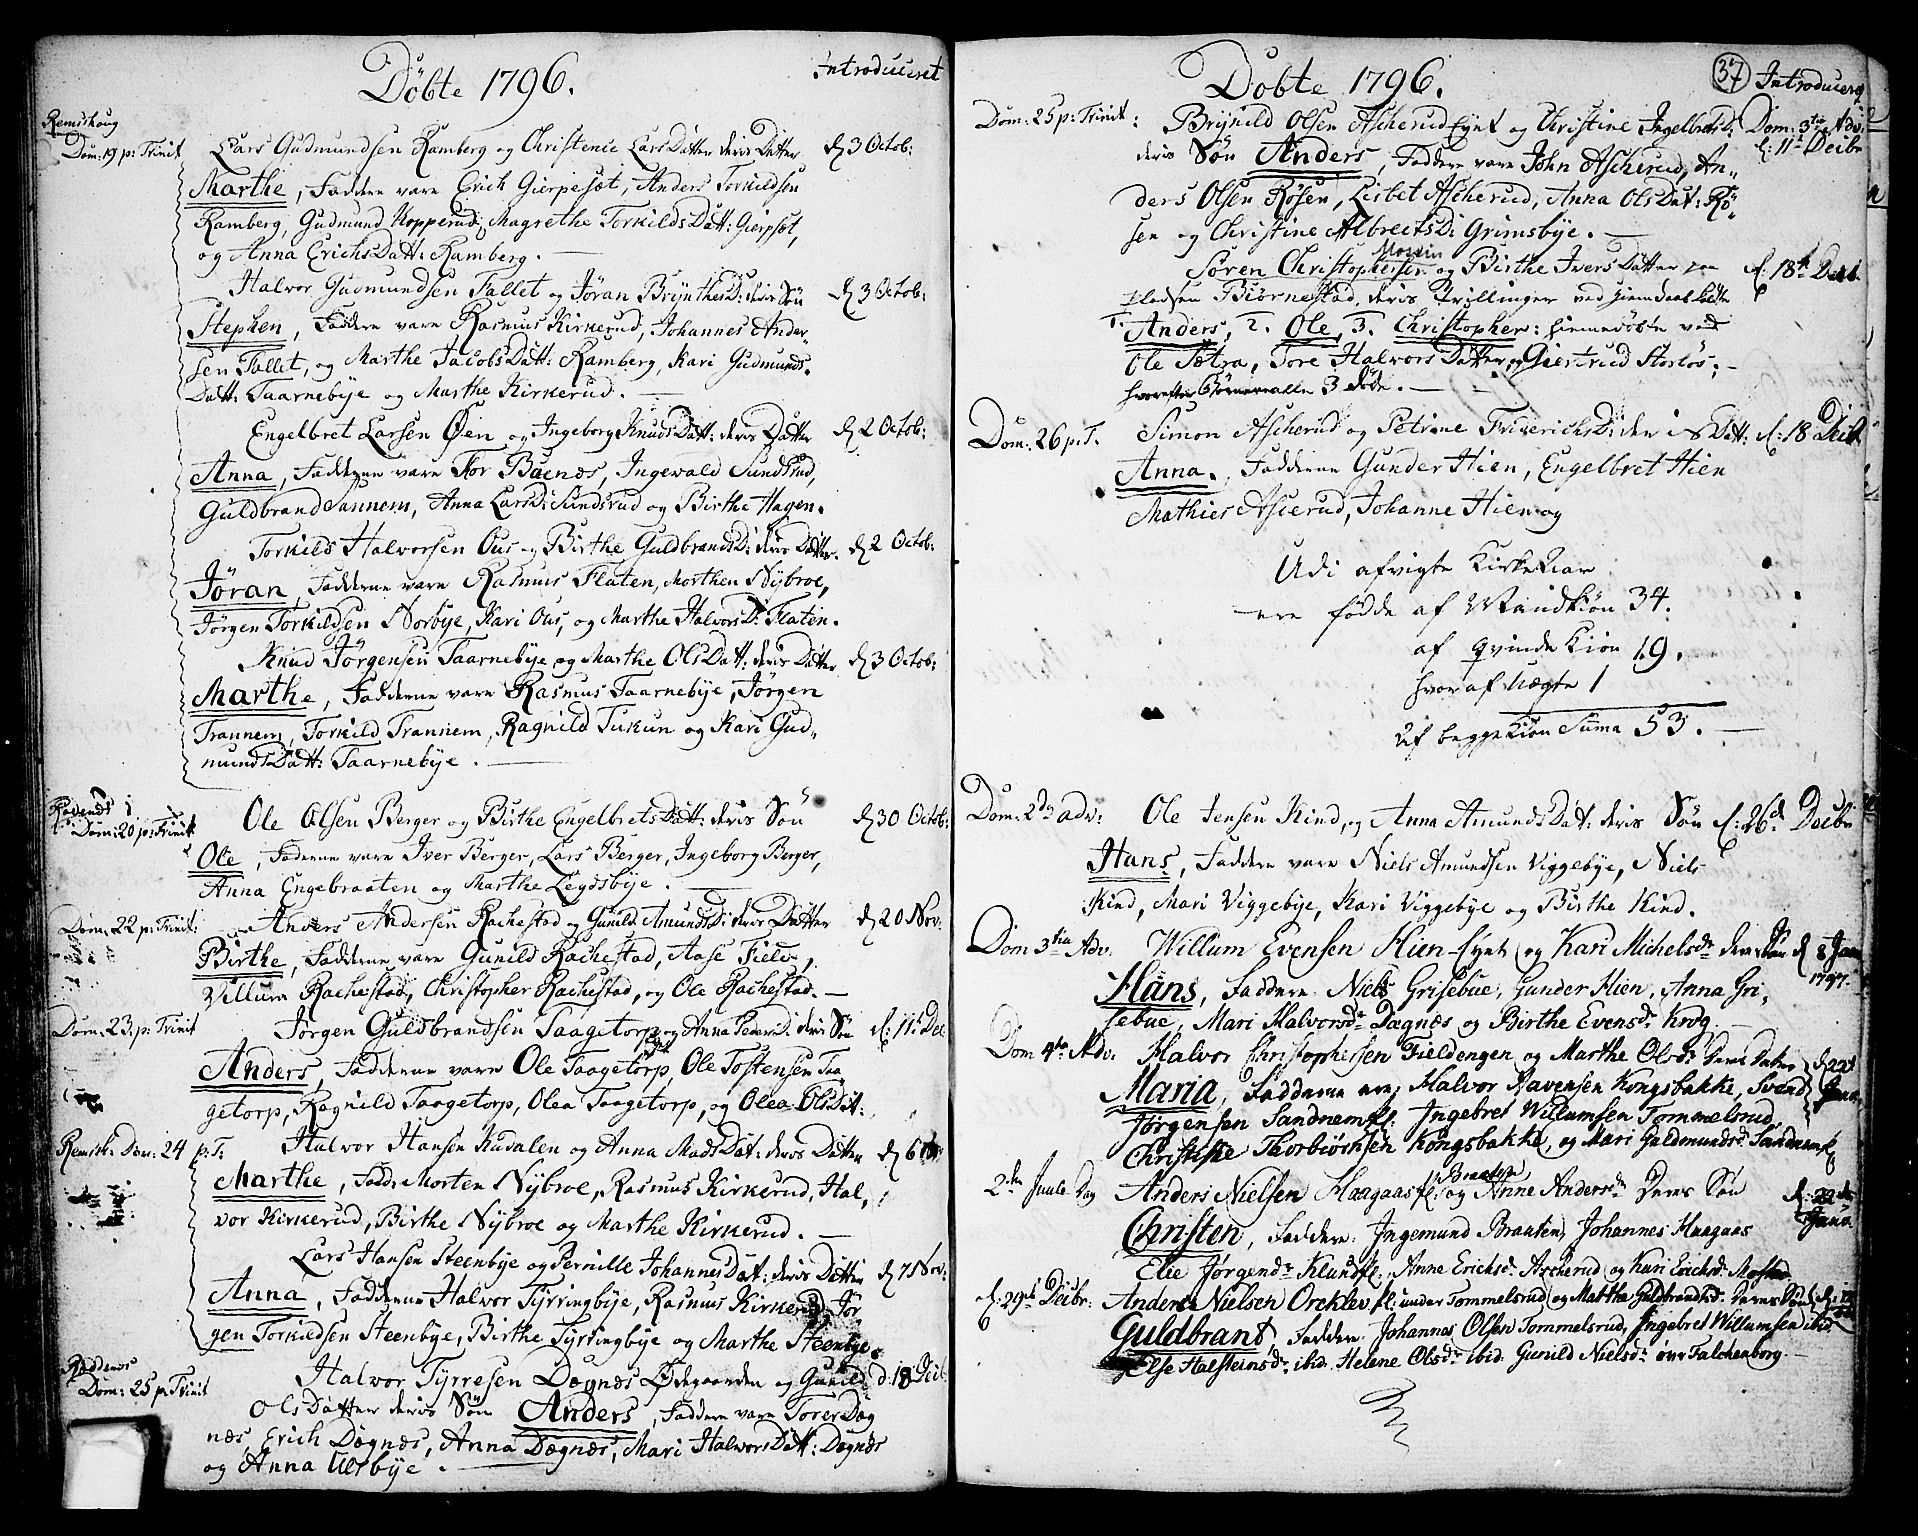 Döbte 1796. Introduceret
Remskoug
Dom: 19 p: Trinit Lars Gudmundsen Ramberg og Christence LarsDatter deris Datter d 3 Octob:
Marthe, Faddere vare Erich Gierpesæt, Anders Torkildsen
Ramberg, Gudmund Kopperud, Magrethe TorkildsDatt: Gierpsæt,
og Anna ErichsDatt: Ramberg.
Halvor Gudmundsen Fallet og Jöran BrynthesD: deris Sön d 3 Octob:
Stephen, Faddere vare Rasmus Kirkerud, Johannes Ander-
sen Fallet, og Marthe JacobsDatt: Ramberg, Kari Gudmunds-
Datt: Taarnebÿe og Marthe Kirkerud.
Engelbret Larsen Øen og Ingeborg KnudsDatt: deris Datter d 2 Octob:
Anna, Fadderne vare Tor Buenæs, Ingewald Sundsrud,
Guldbrand Sannem, Anna LarsD: Sundsrud og Birthe Hagen.
Torkild Halvorsen Ous og Birthe GuldbrandsD: deris Datter d 2 Octob:
Jöran, Fadderne vare Rasmus Flaten, Morthen Nÿbroe,
Jörgen Torkildsen Norbÿe, Kari Ous, og Marthe HalvorsD: Flaten.
Knud Jörgensen Taarnebÿe og Marthe OlsDatt: deris Datter d 3 Octob:
Marthe, Fadderne vare Rasmus Taarnebÿe, Jörgen
Trannem, Torkild Trannem, Ragnild Tukun og Kari Gud-
mundsDatt: Taarnebÿe.
Dom: 20 p: Trinit Ole Olsen Berger og Birthe EngelbretsDatt: deris Sön d 30 Octob:
Ole, Fadderne vare Iver Berger, Lars Berger, Ingeborg Berger,
Anna Engebraaten og Marthe Leÿdsbÿe.
Dom: 22 p: Trinit: Anders Andersen Rachestad og Gunild AmundsD: deris Datter d 20 Nov:
Birthe, Fadderne vare Gunild Rachestad, Aase Field,
Villum Rachestad, Christopher Rachestad, og Ole Rachestad.
Dom: 23 p: Trinit Jörgen Guldbrandsen Taagetorp og Anna PedersD: deris Sön d: 11t Dec
Anders, Fadderne vare Ole Taagetorp, Ole Tostensen Taa
getorp, Ragnild Taagetorp, Olea Taagetorp, og Olea OlsDat:
Remsk: Dom: 24 p: T. Halvor Hansen Kudalen og Anna MadsDat: deris Datter d 6 Nov
Marthe, Fadde Morten Nÿbroe, Rasmus Kirkerud, Hal-
vor Kirkerud, Birthe Nÿbroe og Marthe Kirkerud.
Lars Hansen Steenbÿe og Pernille JohannesDat: deris Datter d 7 Nov:
Anna, Fadderne Halvor Tÿrringbÿe, Rasmus Kirkerud, Jör
gen Torkildsen Steenbÿe, Birthe Tÿrringbÿe og Marthe Steenbÿe.
Röddenes
Dom: 25 p: Trinit Halvor Tÿrresen Dægnæs Ødegaarden og Gunild d: 18 Decb
OlsDatter deris Sön Anders, Faddere vare Torer Dæg
næs, Erich Dægnæs, Anna Dægnæs, Mari HalvorsDatt: Dægnæs
og Anna Ulsbÿe.
Döbte 1796. 37 Introducerq
Dom: 25 p: Trinit: Brÿnild Olsen Ascherud Eÿnt og Christine IngelbretsD: Dom: 3tia Adv:
deris Sön Anders, Faddere vare John Ascherud, An- d: 11te Decbr
ders Olsen Rösen, Lisbet Ascherud, Anna OlsDat: Rö-
sen og Christine AlbrectsD: Grimsbÿe.
Mosviin
Sören Christophersen og Birthe IversDatter paa d: 18de Decb
Pladsen Biörnestad, deris Trillinger ved Hiemdaab kaldte
1. Anders, 2. Ole, 3. Christopher: hiemedöbte ved
Ole Sætra, Tore HalvorsDatter, og Giertrud Storlös;
hvorefter Börnene alle 3 döde.
Dom: 26 p. T. Simon Ascherud og Petrine FriderichsD: deris Datt: d: 18 Decb
Anna. Fadderne Gunder Hien, Engelbret Hien
Mathies Ascerud, Johanne Hien og
Udi afvigte Kirke Aar
ere födde af Mandkiön 34.
af qvinde Kiön 19.
hvoraf Uægte 1
af begge Kiön Suma 53.
Dom: 2den adv: Ole Jensen Kind, og Anna AmundsDat: deris Sön d: 26d Decbr
Hans, Faddere vare Niels Amundsen Viggebÿe, Niels
Kind, Mari Viggebÿe, Kari Viggebÿe og Birthe Kind.
Dom 3tia Adv. Willum Evensen Hien-Eÿnt og Kari Michelsdr deres Sön d 8 Jan
Hans, Faddere Niels Grisebue, Gunder Hien, Anna Gri- 1797.
sebue, Mari Halvorsdr Dægnæs og Birthe Evensdr Krog
Dom 4ta Adv. Halvor Christophersen Fieldengen og Marthe Olsdr Deres Dater d 22d
Maria, Fadderne ere; Halvor Havensen Kongsbakke, Svend Janu.
Jörgensen Sandnem fl: Ingebret Willumsen Tommelsrud,
Christine Thorbiörnsen Kongsbakke, og Mari Guldmundsdr Sandnem
2den Juule-Dag Anders Nielsen Haagaas fl. Braaten og Anne Andersdr Deres Sön d: 22de
Christen, Faddere: Ingemund Braaten, Johannes Haagaas Janu.
Elie Jörgendr Klund fl: Anne Ericksdr Ascherud og Kari Ericksdr Moseen
d: 29de Decbr: Anders Nielsen Orcklev fl: under Tommelsrud og Martha Guldbrandsdr Deres Sön
Guldbrant, Faddere, Johannes Olsen Tommelsrud, Ingebret Willumsen ibid
Else Halsteinsdr ibid. Helene Olsdr ibid. Gunild Nielsdr övre Falchenborg